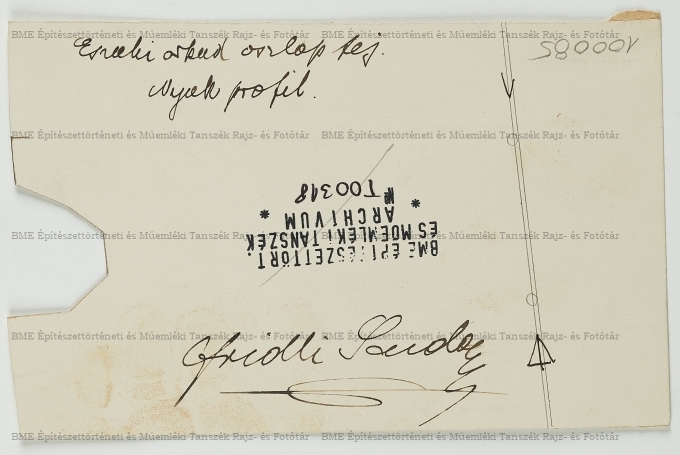 Északi árkád oszlop fej.
Nyak profil.
BME ÉPÍTÉSZETTÖRT.
ÉS MŰEMLÉKI TANSZÉK
* ARCHIVUM *
№ T00318
Fridli Sándor
BME Építészettörténeti és Műemléki Tanszék Rajz- és Fotótár